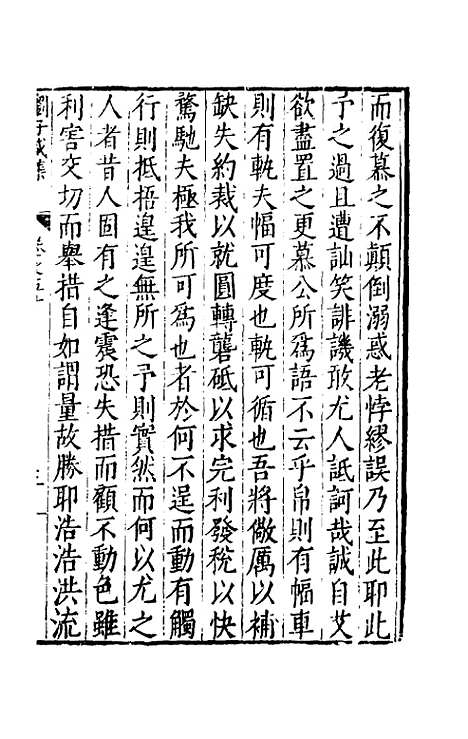 而復慕之不顛倒溺惑老悖繆誤乃至此耶此
予之過且遭訕笑誹譏敢尤人詆訶哉誠自艾
欲盡置之更慕公所爲語不云乎帛則有幅車
則有軌夫幅可度也軌可循也吾將儆厲以補
缺失約裁以就圓轉礱砥以求完利發稅以快
驁馳夫極我所可爲也者於何不逞而動有觸
行則抵捂遑遑無所之予則實然而何以尤之
人者昔人固有之逢震恐失措而顧不動色雖
利害交切而舉措自如謂量故勝耶浩浩洪流
劉子威集
卷之五十